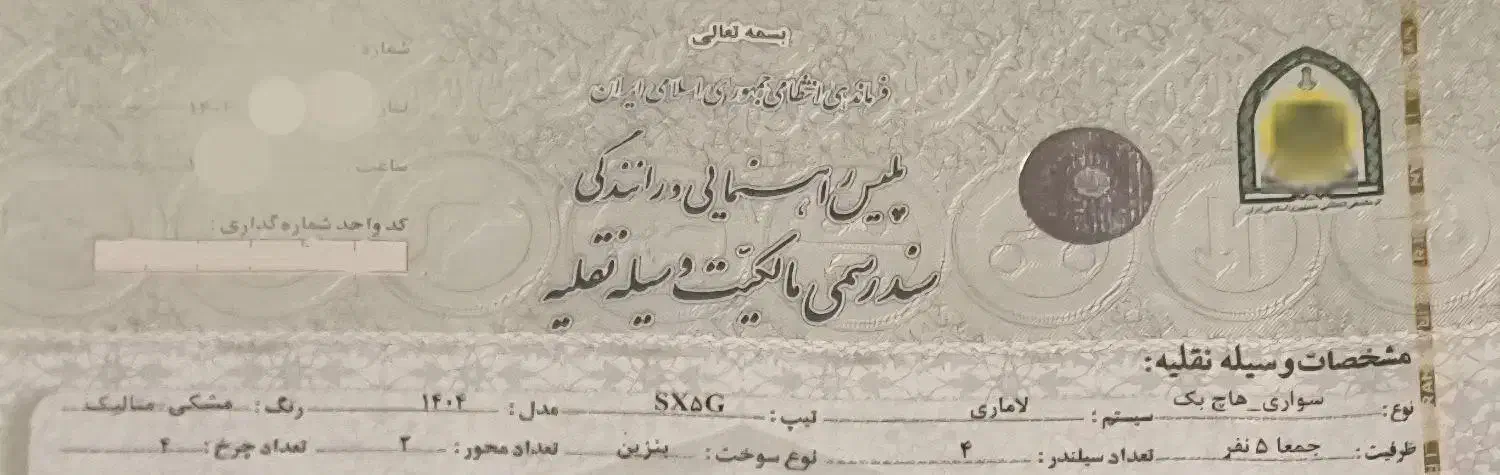 بسمه تعالی
فرماندهی انتظامی جمهوری اسلامی ایران
پلیس راهنمایی و رانندگی
سند رسمی مالکیت وسیله نقلیه
شماره
ساعت
کد واحد شماره گذاری :
مشخصات وسیله نقلیه:
نوع: سواری_هاچ بک سیستم: لاماری تیپ: SX۵G مدل: ۱۴۰۴ رنگ: مشکی متالیک
ظرفیت: جمعا ۵ نفر تعداد سیلندر: ۴ نوع سوخت: بنزین تعداد محور: ۲ تعداد چرخ: ۴